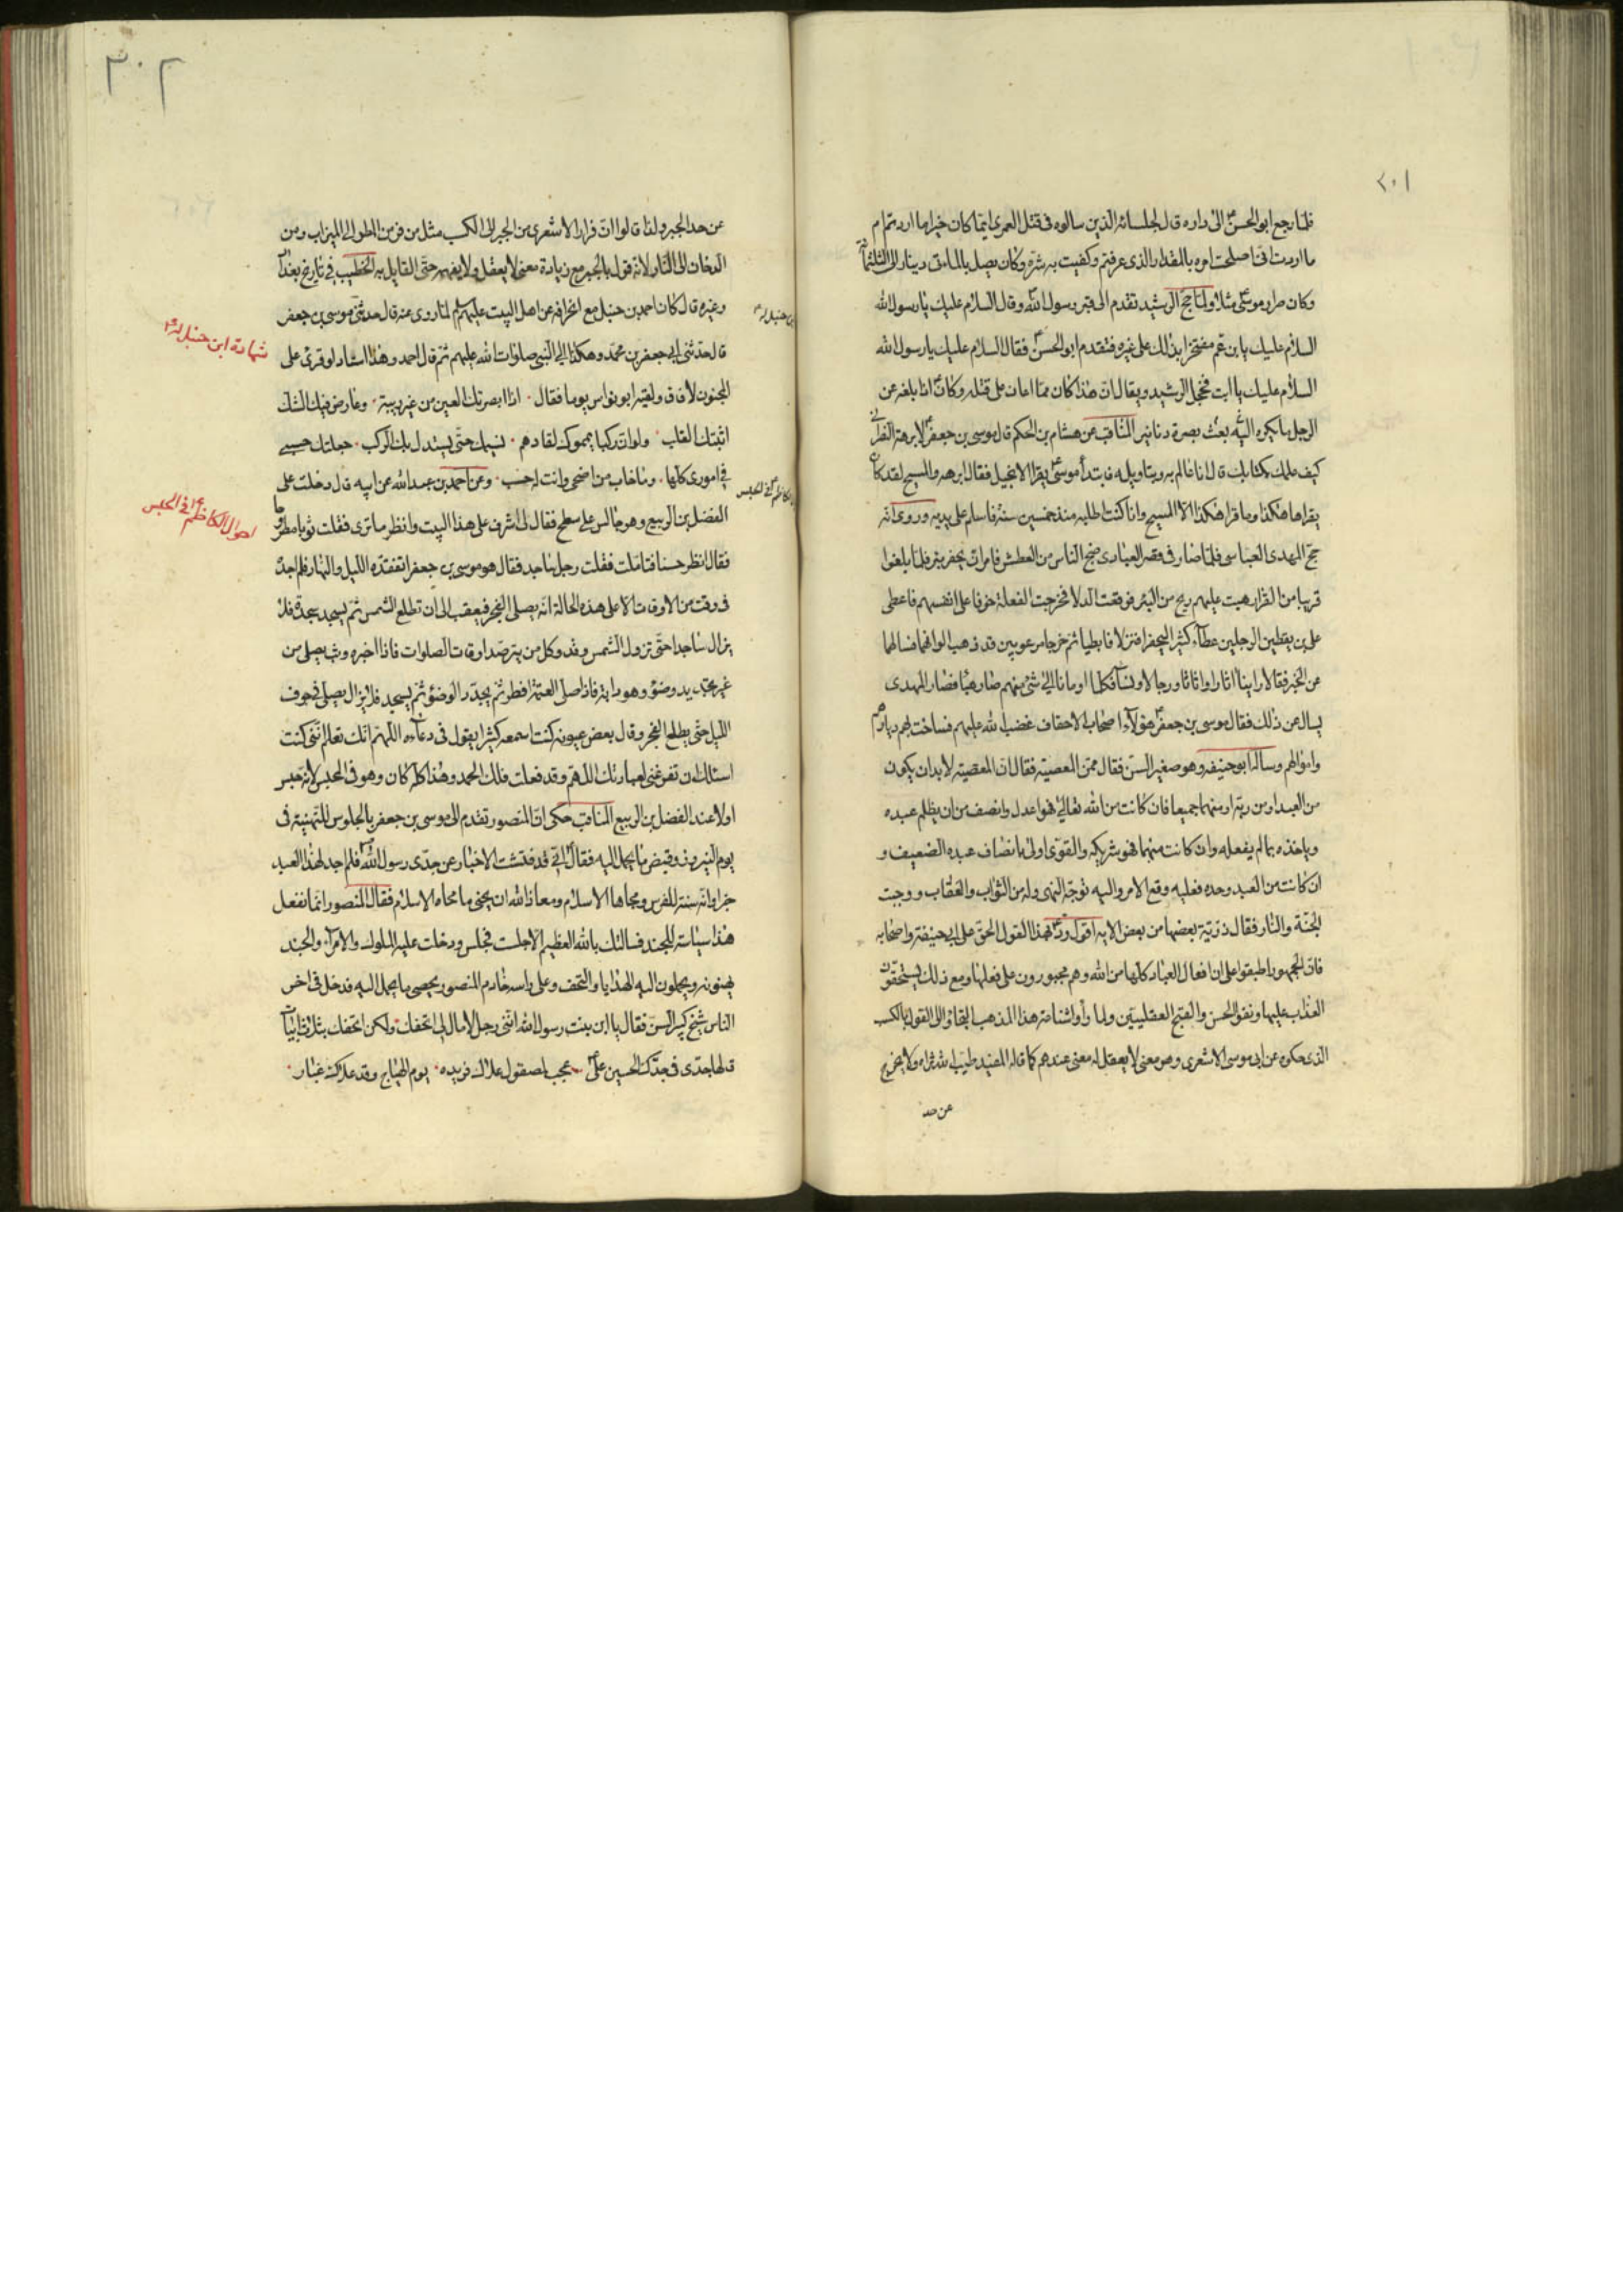 ٢٠١
فلما رجع ابو الحسن ع الى داره قال لجلسائه الذين سالوه فى قتل العمرى ايما كان خيرا ما اردتم ام
ما اردت اننى اصلحت امره بالمقدار الذى عرفتم وكفيت به شره وكان يصل بالمأتى دينار الى الثلثمأة
وكان صرار موسى ع مثلا ولما حج الرشيد تقدم الى قبر رسول الله ص وقال السلام عليك يا رسول الله
السلام عليك يا بن عم مفتخرا بذلك على غيره فتقدم ابو الحسن ع فقال السلام عليك يا رسول الله
السلام عليك يا ابت فخجل الرشيد ويقال ان هذا كان مما اعان على قتله وكان ع اذا بلغه عن
الرجل ما يكره اليه بعث بصرة دنانير المناقب عن هشام بن الحكم قال موسى بن جعفر ع لابرهة النصرانى
كيف علمك بكتابك قال انا عالم به وبتاويله فابتدأ موسى ع يقرا الانجيل فقال ابرهه والمسيح لقد كان
يقراها هكذا وما قرا هكذا الا المسيح وانا كنت اطلبه منذ خمسين سنة فاسلم على يديه وروى انه
حج المهدى العباسى فلما صار فى قصر العبادى ضج الناس من العطش فامر ان يحفر بئر فلما بلغوا
قريبا من القرار هبت عليهم ريح من البئر فوقعت الدلاء فخرجت الفعلة خوفا على انفسهم فاعطى
على بن يقطين الرجلين عطاء كثيرا ليحفرا فنزلا فابطيا ثم خرجا مرعوبين قد ذهب الوانهما فسالهما
عن الخبر فقالا راينا اثارا واثاثا ورجالا ونسآء فكلما اومانا الى شئ منهم صار هبآء فصار المهدى
يسال عن ذلك فقال موسى بن جعفر ع هؤلآء اصحاب الاحقاف غضب الله عليهم فساخت بهم ديارهم
واموالهم وساله ابو حنيفه وهو صغير السن فقال ممن المعصية فقال ان المعصية لا بد ان يكون
من العبد او من ربه او منهما جميعا فان كانت من الله تعالى فهو اعدل وانصف من ان يظلم عبده
وياخذه بما لم يفعله وان كانت منهما فهو شريكه والقوى اولى بانصاف عبده الضعيف و
ان كانت من العبد وحده فعليه وقع الامر واليه توجه النهى وله من الثواب والعقاب ووجبت
الجنة والنار فقال ذرية بعضها من بعض الايه اقول ورد بهذا القول الحق على ابى حنيفة واصحابه
فان الجمهور اطبقوا على ان افعال العباد كلها من الله وهم مجبورون على فعلها ومع ذلك يستحقون
العذاب عليها ونفوا الحسن والقبح العقليين ولما رأوا شناعة هذا المذهب التجاؤا الى القول بالكسب
الذى حكوه عن ابى موسى الاشعرى وهو معنى لا يعقل له معنى عندهم كما قاله المفيد طيب الله ثراه ولا يخرج
عن حد
٣٠٢
عن حد الجبر ولذا قالوا ان فرار الاشعرى من الجبر الى الكسب مثل من فر من المطر الى الميزاب ومن
الدخان الى النار لانه قول بالجبر مع زيادة معنى لا يعقل ولا يفهمه حتى القايل به الخطيب فى تاريخ بغداد
وغيره قال كان احمد بن حنبل مع انحرافه عن اهل البيت عليهم السلم لما روى عنه قال حدثنى موسى بن جعفر
قال حدثنى ابى جعفر بن محمد وهكذا الى النبى صلوات الله عليهم ثم قال احمد وهذا اسناد لو قرئ على
المجنون لافاق ولقيه ابو نواس يوما فقال اذا ابصرتك العين من غير ريبة وعارض فيك الشك
اثبتك القلب ولو ان ركبا يمموك لقادهم نسيمك حتى يستدل بك الركب جعلتك حسبى
فى امورى كلها وما خاب من اضحى وانت له حسب وعن احمد بن عبد الله عن ابيه قال دخلت على
الفضل بن الربيع وهو جالس على سطح فقال لى اشرف على هذا البيت وانظر ما ترى فقلت ثوبا مطروحا
فقال انظر حسنا فتاملت فقلت رجل ساجد فقال هو موسى بن جعفر اتفقده الليل والنهار فلم اجده
فى وقت من الاوقات الا على هذه الحالة انه يصلى الفجر فيعقب الى ان تطلع الشمس ثم يسجد سجدة فلا
يزال ساجدا حتى تزول الشمس وقد وكل من يترصد اوقات الصلوات فاذا اخبره وثب يصلى من
غير تجديد وضؤ وهو دابه فاذا صلى العتمة افطر ثم يجدد الوضؤ ثم يسجد فلا يزال يصلى فى جوف
الليل حتى يطلع الفجر وقال بعض عيونه كنت اسمعه كثيرا يقول فى دعآئه اللهم انك تعلم اننى كنت
اسئلك ان تفرغنى لعبادتك اللهم وقد فعلت فلك الحمد وهذا كله كان وهو فى الحبس لانه حبس
اولا عند الفضل بن الربيع المناقب حكى ان المنصور تقدم الى موسى بن جعفر ع بالجلوس للتهنية فى
يوم النيروز وقبض ما يحمل اليه فقال ع انى قد فتشت الاخبار عن جدى رسول الله ص فلم اجد لهذا العيد
خبرا وانه سنة للفرس ومحاها الاسلام ومعاذ الله ان يحيى ما محاه الاسلام فقال المنصور انما نفعل
هذا سياسة للجند فسالتك بالله العظيم الا جلست فجلس ودخلت عليه الملوك والامرآء والجند
يهنونه ويحملون اليه الهدايا والتحف وعلى راسه خادم المنصور يحصى ما يحمل اليه فدخل فى اخر
الناس شيخ كبير السن فقال يا ابن بنت رسول الله اننى رجل لا مال لى اتحفك ولكن اتحفك بثلاثة ابيات
قالها جدى فى جدك الحسين بن على ع عجب لمصقول علاك فرنده يوم الهياج وقد علاك غبار
شهادة ابن حنبل له ع
احوال الكاظم ع فى الحبس
ابن حنبل له ع
الكاظم ع فى الحبس